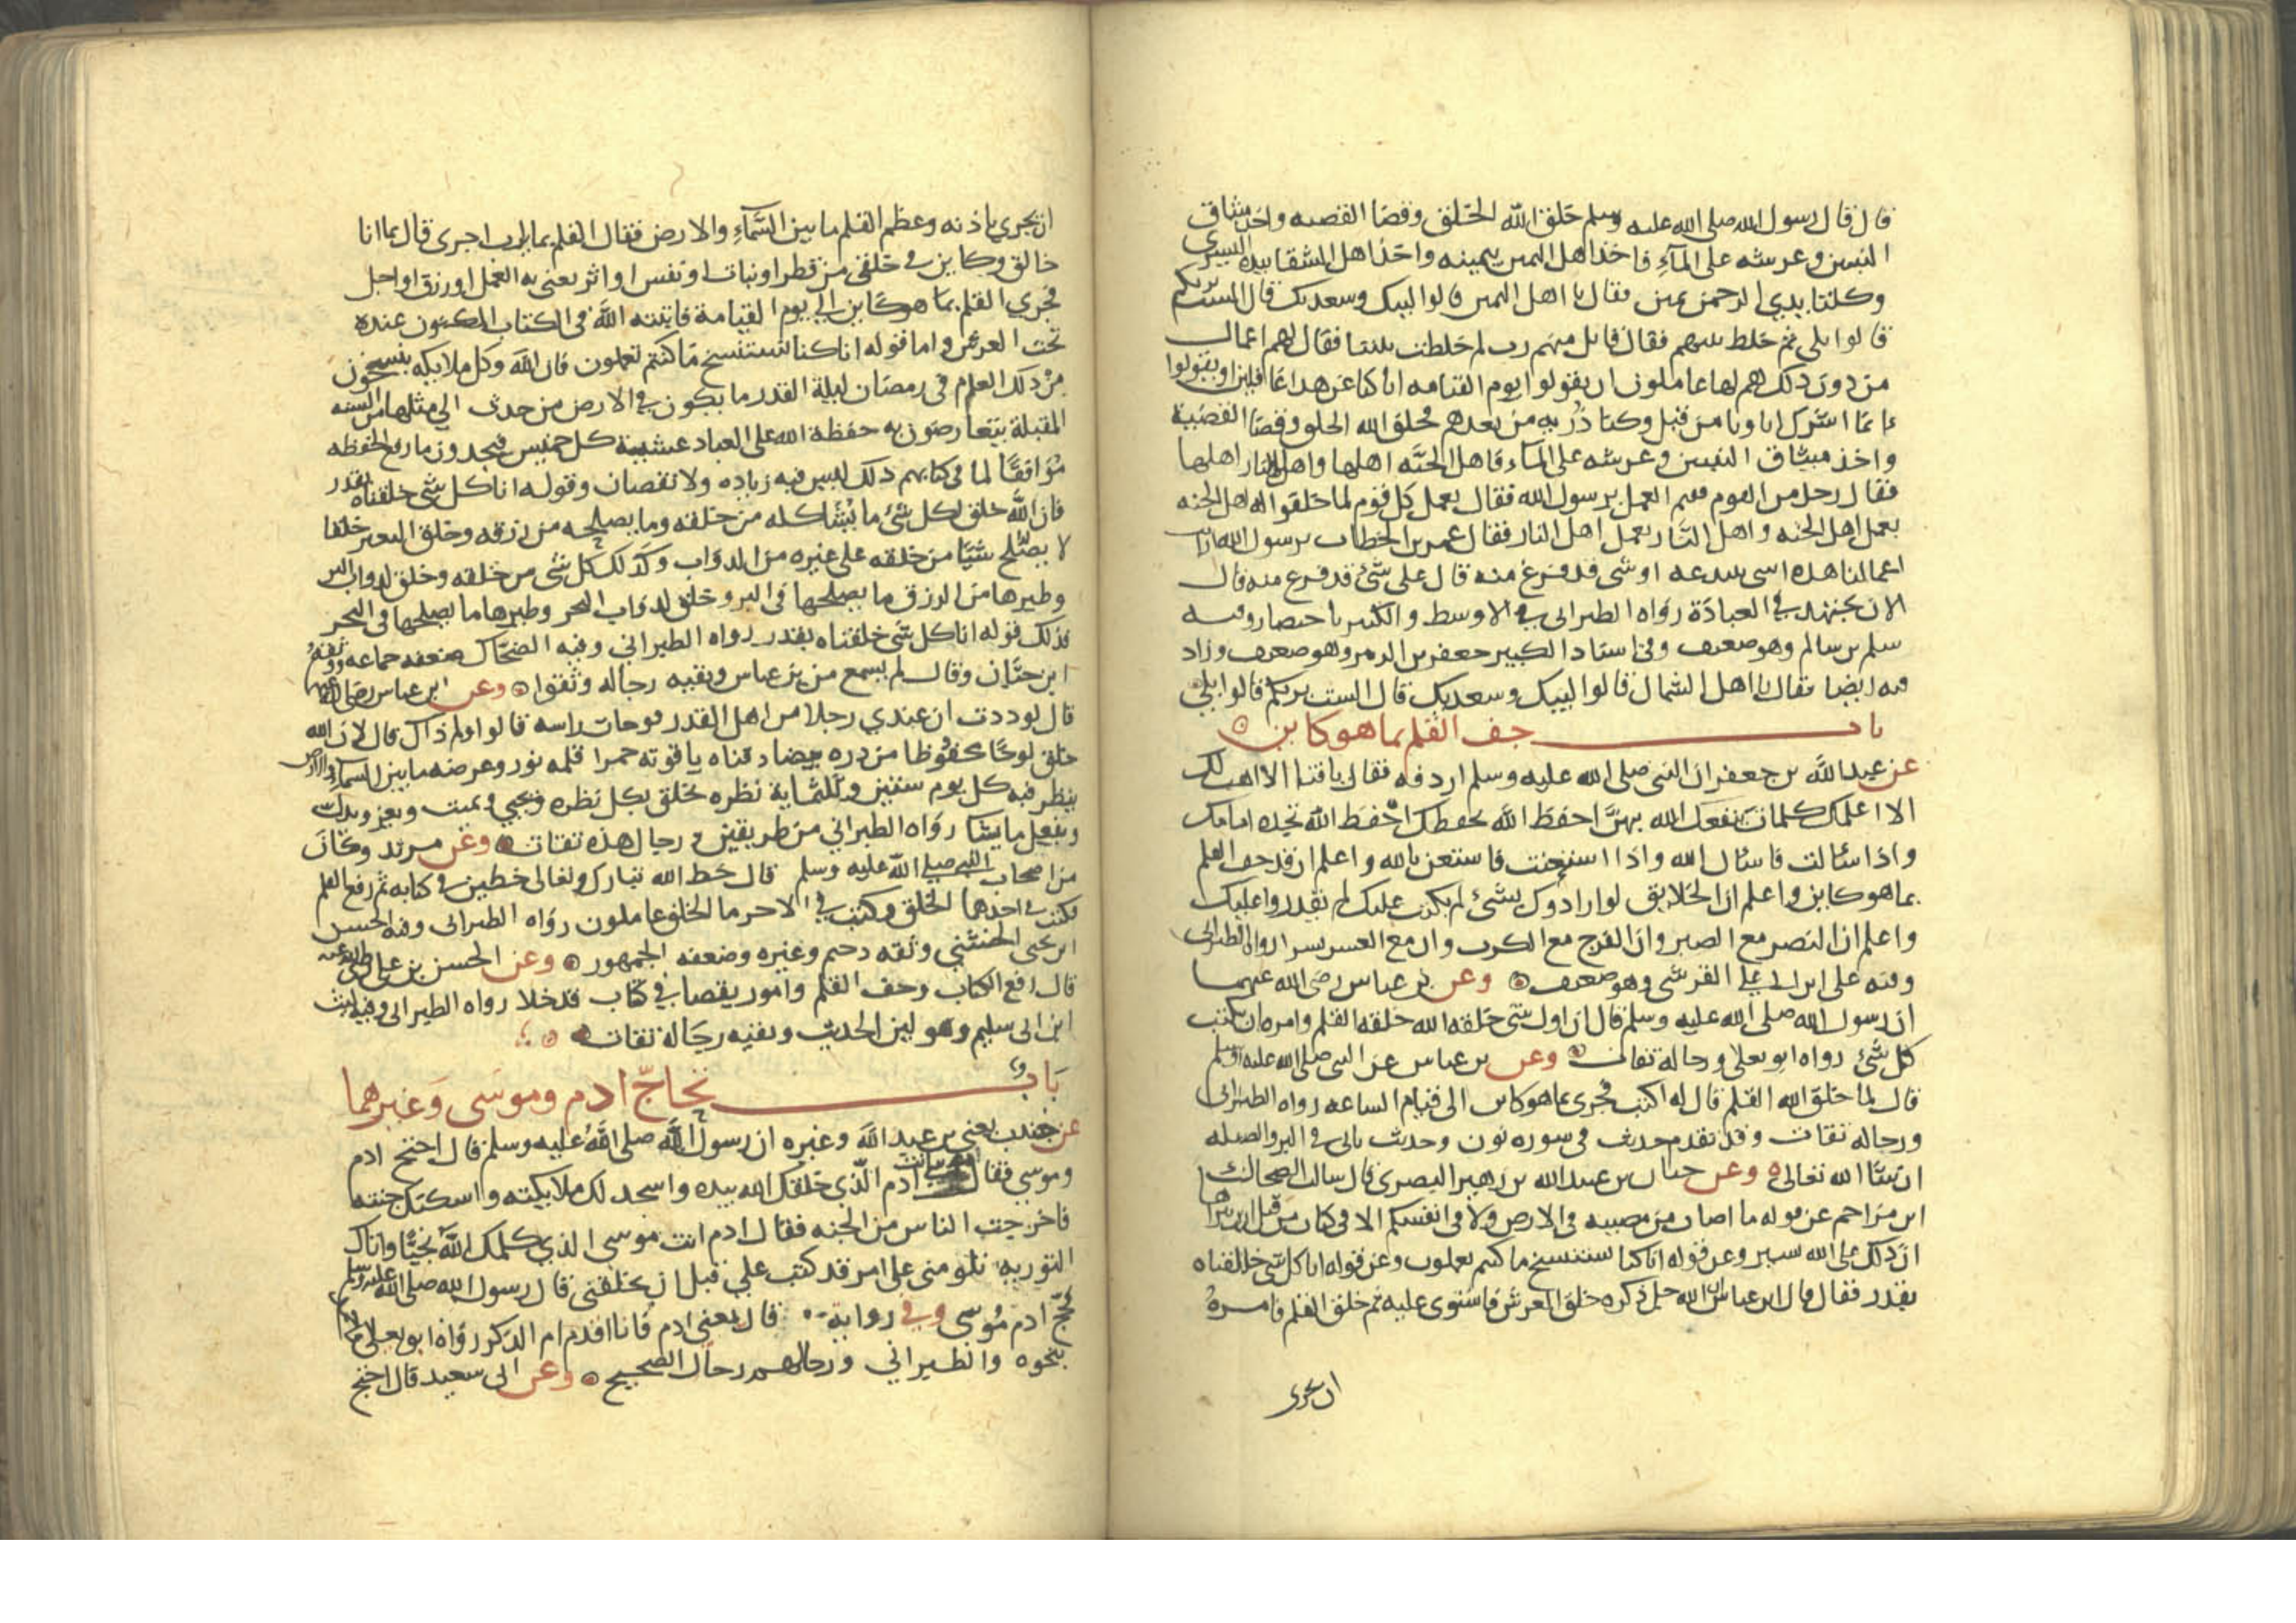 قال قال رسول الله صلى الله عليه وسلم خلق الله الخلق وقضا القضيه واخذ ميثاق
النبيين وعرشه على الماء فاخذ اهل اليمين بيمينه واخذ اهل الشقا بيده اليسرى
وكلتا يدي الرحمن يمين فقال يا اهل اليمين قالوا لبيك وسعديك قال الست بربكم
قالوا بلى ثم خلط بينهم فقال قايل منهم رب لم خلطت بيننا فقال لهم اعمال
من دون ذلك هم لها عاملون ان يقولوا يوم القيامه انا كنا عن هدا غافلين او يقولوا
انما اشرك اباونا من قبل وكنا ذريه من بعدهم فخلق الله الخلق وقضا القضية
واخذ ميثاق النبيين وعرشه على الماء فاهل الجنه اهلها واهل النار اهلها
فقال رجل من القوم ففيم العمل يرسول الله فقال يعمل كل قوم لما خلقوا له اهل الجنه
بعمل اهل الجنه واهل النار بعمل اهل النار فقال عمر بن الخطاب يرسول الله ارايت
اعمالنا هذه اشى نبتدعه او شى قد فرغ منه قال على شئ قد فرغ منه قال
الان نجتهد في العبادة رواه الطبراني في الاوسط والكبير باختصار وفيه
سلم بن سالم وهو ضعيف وفي اسناد الكبير جعفر بن الزبير وهو ضعيف وزاد
فيه ايضا فقال يا اهل الشمال قالوا لبيك وسعديك قال الست بربكم قالوا بلى
باب جف القلم بما هو كاين
عن عبد الله بن جعفر ان النبى صلى الله عليه وسلم اردفه فقال يا فتى الا اهب لك
الا اعلمك كلمات ينفعك الله بهن احفظ الله يحفظك احفظ الله تجده امامك
واذا سئالت فاسئال الله واذا استعنت فاستعن بالله واعلم ان قد جف القلم
بما هو كاين واعلم ان الخلايق لو ارادوك بشئ لم يكتب عليك لم يقدروا عليك
واعلم ان النصر مع الصبر وان الفرج مع الكرب وان مع العسر يسرا رواه الطبراني
وفيه على ابن ابي علي القرشي وهو ضعيف وعن بن عباس رضى الله عنهما
ان رسول الله صلى الله عليه وسلم قال ان اول شى خلقه الله خلقه القلم وامره ان يكتب
كل شئ رواه ابو يعلى ورجاله ثقات وعن بن عباس عن النبى صلى الله عليه وسلم
قال لما خلق الله القلم قال له اكتب فجرى بما هو كاين الى قيام الساعه رواه الطبراني
ورجاله ثقات وقد تقدم حديث فى سوره نون وحديث ياتى في البر والصله
ان شا الله تعالى وعن حبان بن عبيد الله بن زهير البصرى قال سالت الضحاك
ابن مزاحم عن قوله ما اصاب من مصيبه فى الارض ولا فى انفسكم الا فى كتاب من قبل ان نبراها
ان ذلك على الله يسير وعن قوله انا كنا نستنسخ ما كنتم تعملون وعن قوله انا كل شى خلقناه
بقدر فقال قال ابن عباس ان الله جل ذكره خلق العرش فاستوى عليه ثم خلق القلم فامره
ان يجرى
ان يجري باذنه وعظم القلم ما بين السماء والارض فقال القلم بما يارب اجرى قال بما انا
خالق وكاين في خلقى من قطر او نبات او نفس او اثر يعنى به العمل او رزق او اجل
فجرى القلم بما هو كاين الى يوم القيامة فاثبته الله فى الكتاب المكنون عنده
تحت العرش واما قوله انا كنا نستنسخ ما كنتم تعملون فان الله وكل ملايكه ينسخون
من ذلك العلم فى رمضان ليلة القدر ما يكون في الارض من حدث الي مثلها من السنه
المقبلة يتعارضون به حفظة الله على العباد عشيه كل خميس فيجدون ما رفع الحفظه
موافقا لما فى كتابهم ذلك ليس فيه زياده ولا نقصان وقوله انا كل شى خلقناه بقدر
فان الله خلق لكل شئ ما يشاكله من خلقه وما يصلحه من رزقه وخلق البعير خلقا
لا يصلح شيا من خلقه على غيره من الدواب وكذلك كل شى من خلقه وخلق لدواب البر
وطيرها من الرزق ما يصلحها فى البر وخلق لدواب البحر وطيرها ما يصلحها فى البحر
فذلك قوله انا كل شى خلقناه بقدر رواه الطبراني وفيه الضحاك ضعفه جماعه ووثقه
ابن حبان وقال لم يسمع من بن عباس وبقيه رجاله وثقوا وعن ابن عباس رضى الله عنهما
قال لوددت ان عندي رجلا من اهل القدر فوجات راسه قالوا ولم ذاك قال لان الله
خلق لوحا محفوظا من دره بيضا دفتاه ياقوته حمرا قلمه نور وعرضه ما بين السماء والارض
ينظر فيه كل يوم ستين وثلثماية نظره يخلق بكل نظره ويحيي ويميت ويعز ويذل
ويفعل ما يشا رواه الطبراني من طريقين ورجال هذه ثقات وعن مرثد وكان
من اصحاب النبى صلى الله عليه وسلم قال خط الله تبارك وتعالى خطين في كتابه ثم رفع القلم
فكتب في احدهما الخلق وكتب في الاخر ما الخلق عاملون رواه الطبراني وفيه الحسن
ابن يحيى الخشني وثقه دحيم وغيره وضعفه الجمهور وعن الحسن بن علي رضى الله عنه
قال رفع الكتاب وجف القلم وامور يقضا في كتاب قد خلا رواه الطبراني وفيه ليث
ابن ابى سليم وهو لين الحديث وبقيه رجاله ثقات
باب تحاج ادم وموسى وغيرهما
عن جندب يعني بن عبد الله وغيره ان رسول الله صلى الله عليه وسلم قال احتج ادم
وموسى فقال موسى انت ادم الذي خلقك الله بيده واسجد لك ملايكته واسكنك جنته
فاخرجت الناس من الجنه فقال ادم انت موسى الذي كلمك الله نجيا واتاك
التوريه تلومني على امر قد كتب علي قبل ان يخلقني قال رسول الله صلى الله عليه وسلم
فحج ادم موسى وفي رواية قال يعني ادم فانا اقدم ام الذكر رواه ابو يعلى واحمد
بنحوه والطبراني ورجالهم رجال الصحيح وعن ابى سعيد قال احتج